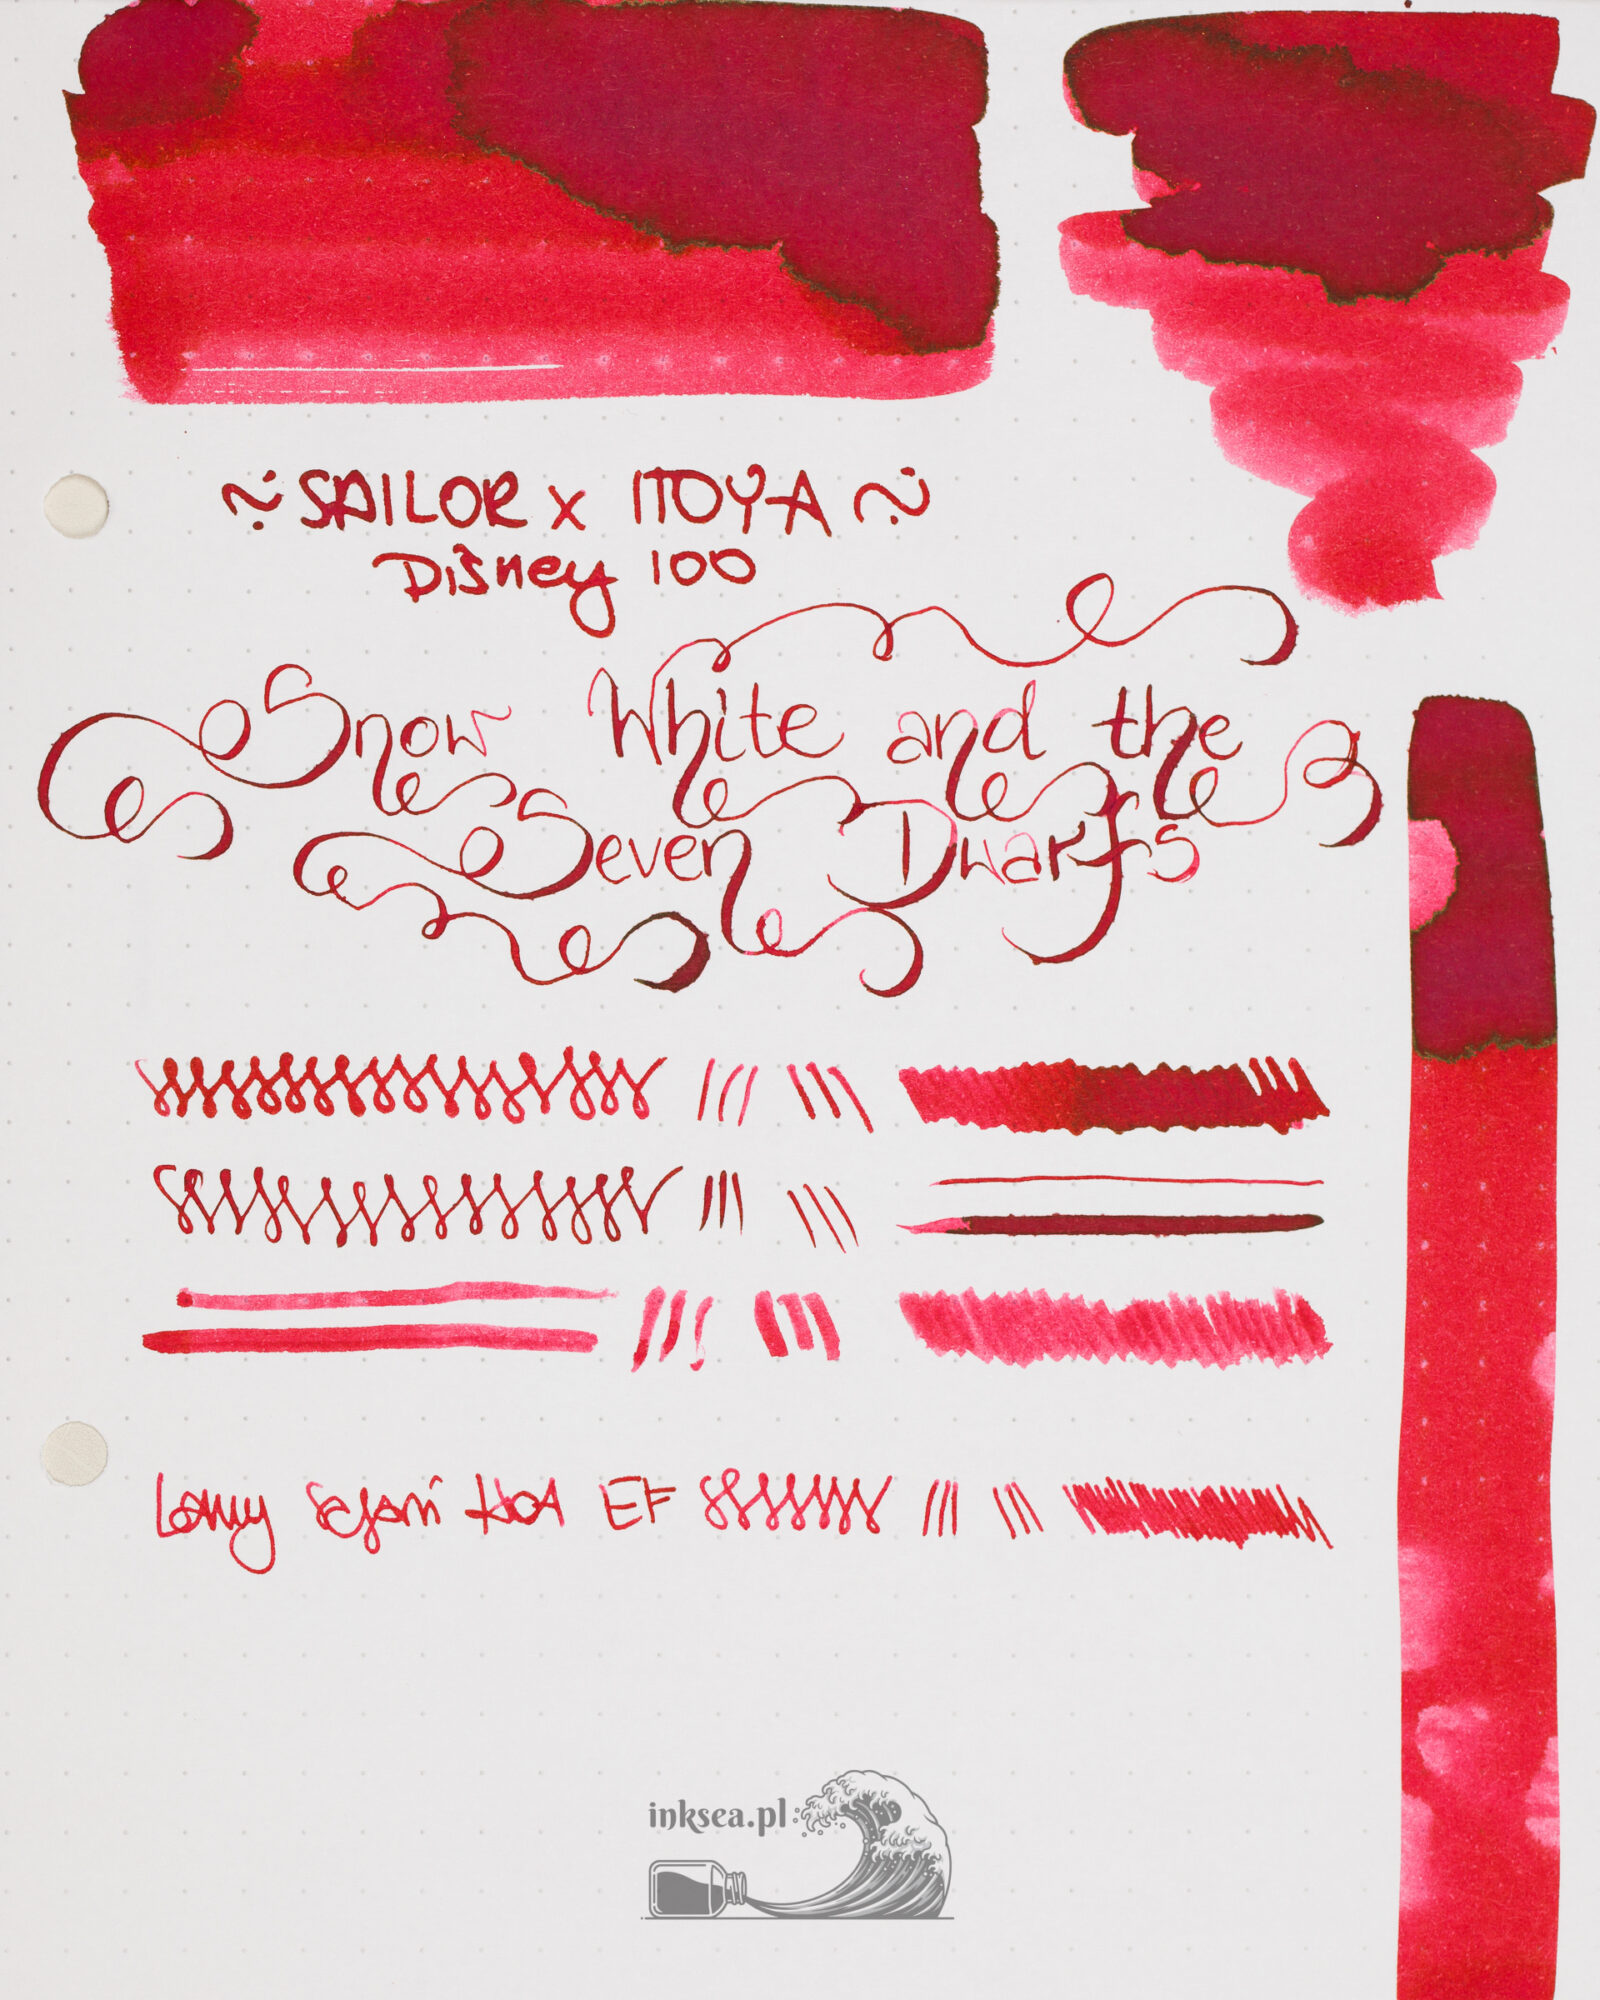 ~ SAILOR x ITOYA ~
Disney 100
Snow White and the
Seven Dwarfs
Lamy Safari EF
inksea.pl